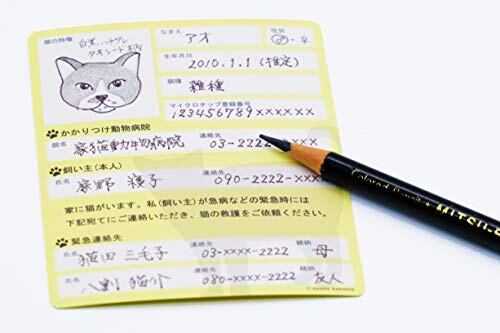 猫の特徴
白黒ハチワレ
タキシード柄
なまえ アオ
性別 ♂・♀
生年月日
2010.1.1(推定)
猫種 雑種
マイクロチップ登録番号
123456789××××××
かかりつけ動物病院
院名 家猫動物病院 連絡先 03-2222-
飼い主(本人)
氏名 家野 猫子 連絡先 090-2222-
家に猫がいます。私(飼い主)が急病などの緊急時には
下記宛てにご連絡いただき、猫の救護をご依頼ください。
緊急連絡先
氏名 猫田 三毛子 連絡先 03-××××-2222 続柄 母
氏名 八割 猫介 連絡先 080-××××-2222 続柄 友人
Colored Pencil
MITSU-